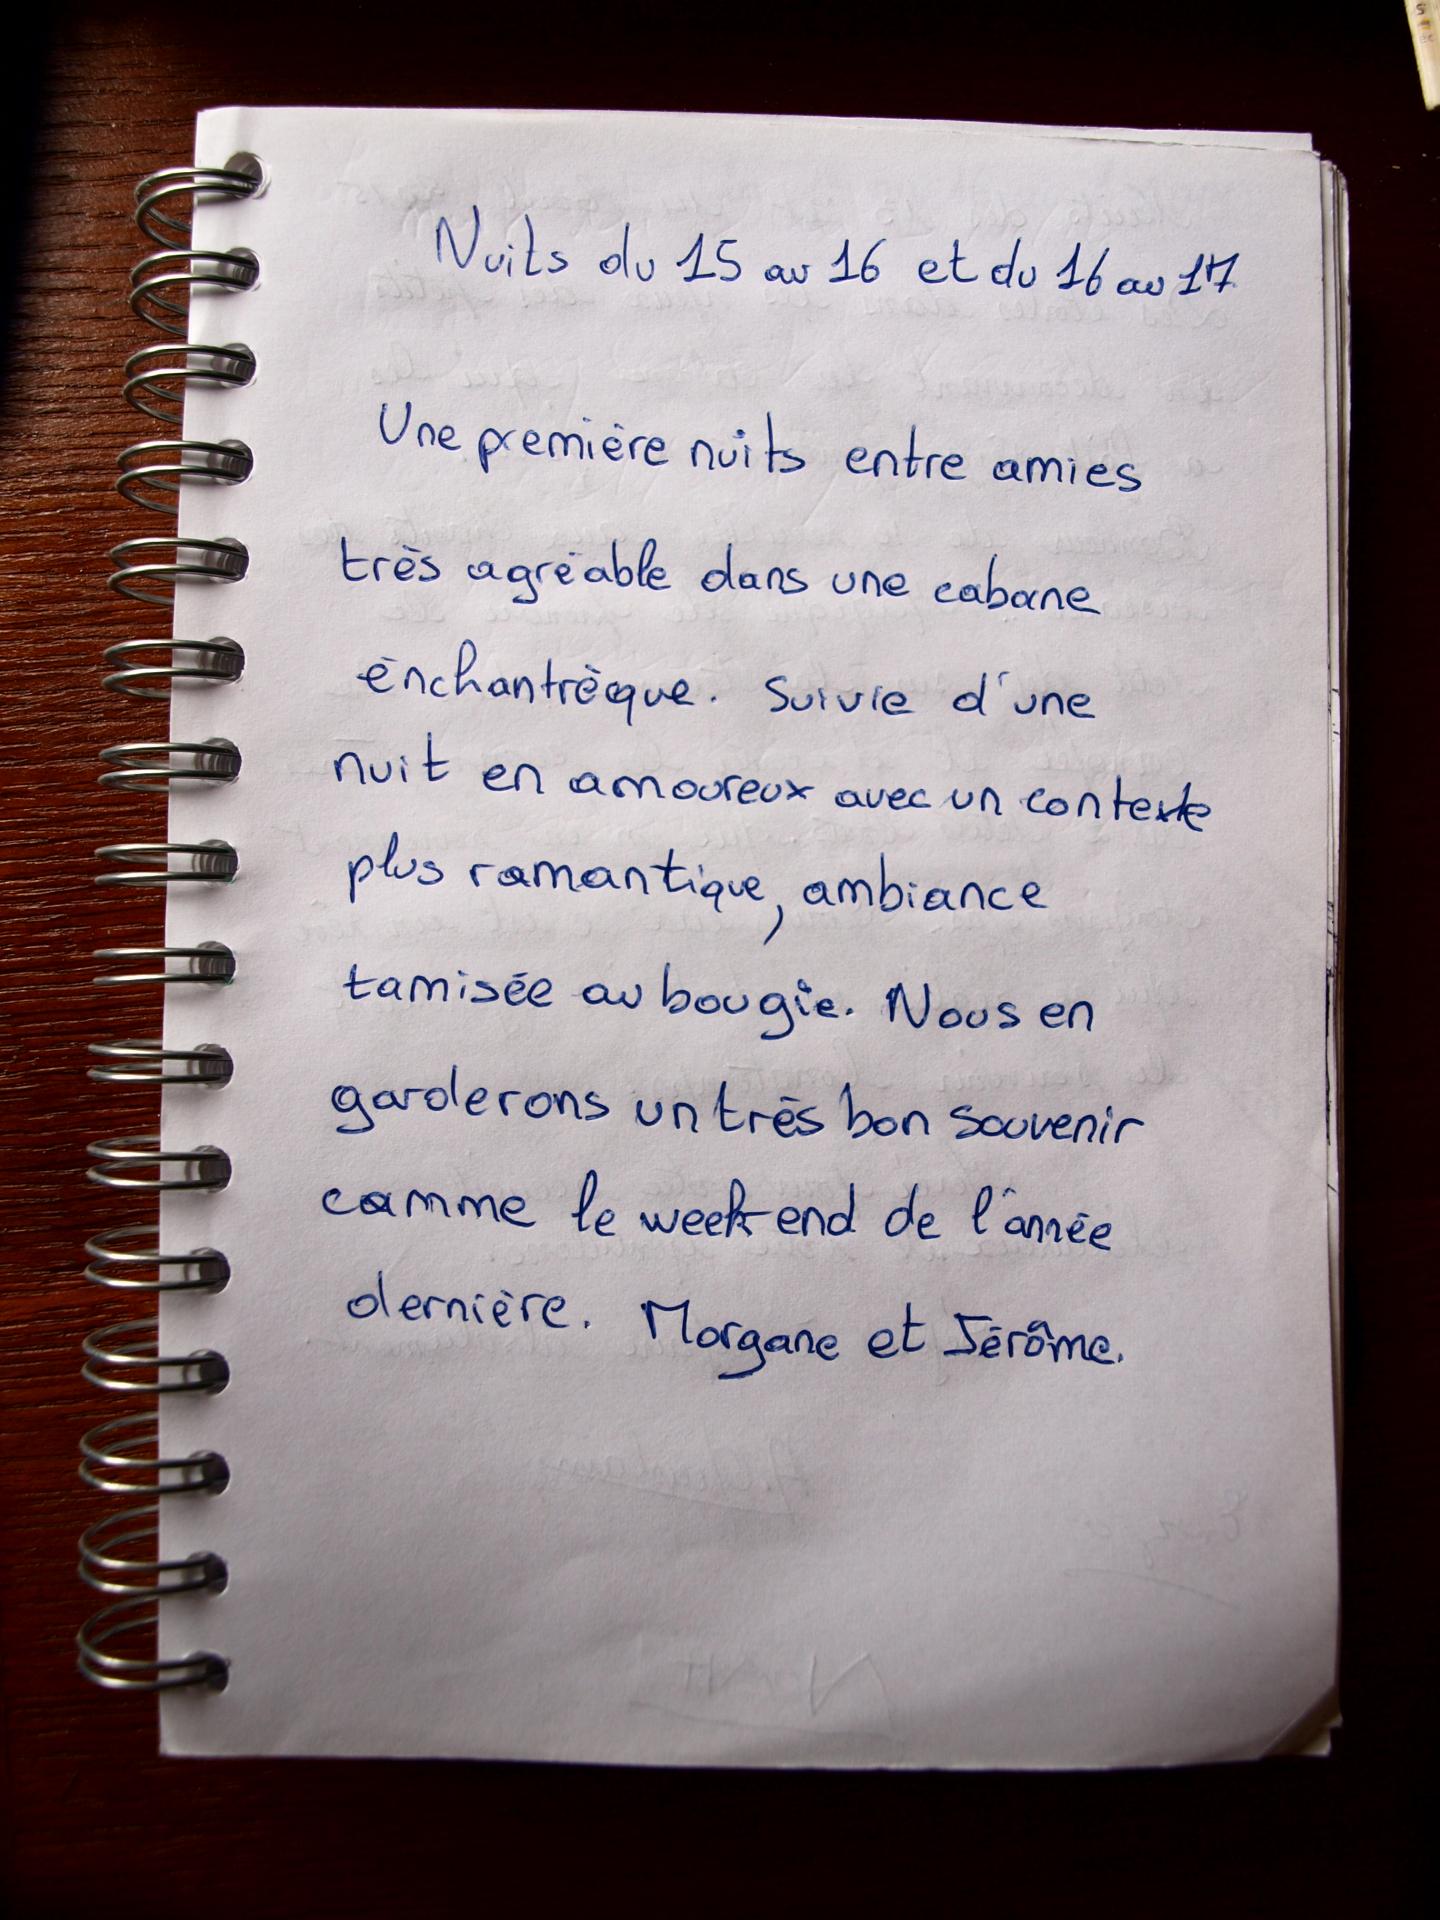 Nuits du 15 au 16 et du 16 au 17
Une première nuits entre amies
très agréable dans une cabane
énchantrèque. Suivie d'une
nuit en amoureux avec un contexte
plus romantique, ambiance
tamisée au bougie. Nous en
garderons un très bon souvenir
comme le week-end de l'année
dernière. Morgane et Jérôme.